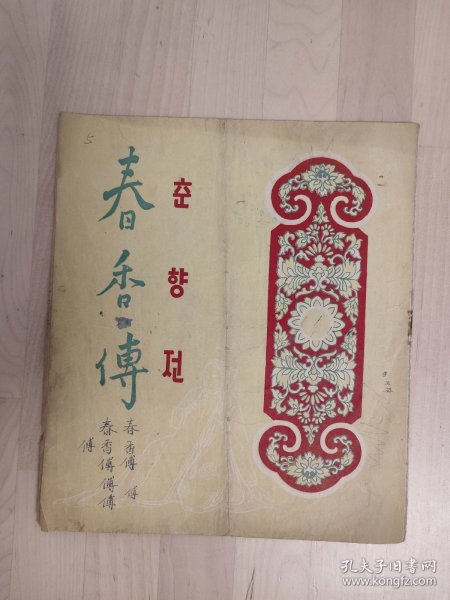 春香傳
춘향전
春香傅 傅
春香傅傅傅
傅
孔夫子旧书网
www.kongfz.com